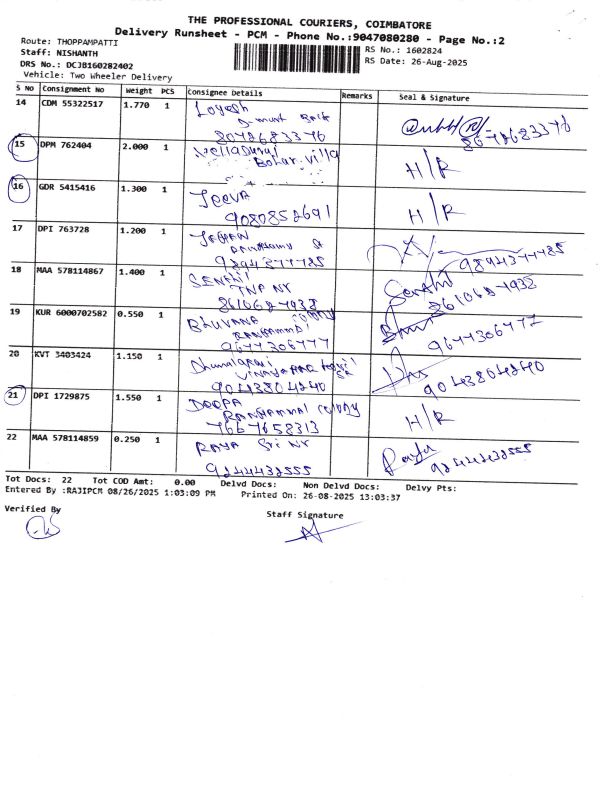 THE PROFESSIONAL COURIERS, COIMBATORE
Delivery Runsheet - PCM - Phone No.:9047080280 - Page No.:2
Route: THOPPAMPATTI
RS No.: 1602824
Staff: NISHANTH
RS Date: 26-Aug-2025
DRS No.: DCJB160282402
Vehicle: Two Wheeler Delivery
S No Consignment No Weight PCS Consignee Details Remarks Seal & Signature
14 CDM 55322517 1.770 1
8072683376
8072683376
15 DPM 762404 2.000 1
villa
H/R
16 GDR 5415416 1.300 1 JEEVA
9080852691
H/R
17 DPI 763728 1.200 1
9894377785
9894377785
18 MAA 578114867 1.400 1 SENTHIL
TNP Nr
8610687938
8610687938
19 KUR 6000702582 0.550 1 BHUVANA colony
RANGAMMAL
9677306777
9677306777
20 KVT 3403424 1.150 1
9043804240
9043804240
21 DPI 1729875 1.550 1 DEEPA
RANGAMMAL colony
7667658313
H/R
22 MAA 578114859 0.250 1 RAYA Sri Nr
9244432555
Raya
9244432555
Tot Docs: 22 Tot COD Amt: 0.00 Delvd Docs: Non Delvd Docs: Delvy Pts:
Entered By :RAJIPCM 08/26/2025 1:03:09 PM Printed On: 26-08-2025 13:03:37
Verified By
Staff Signature